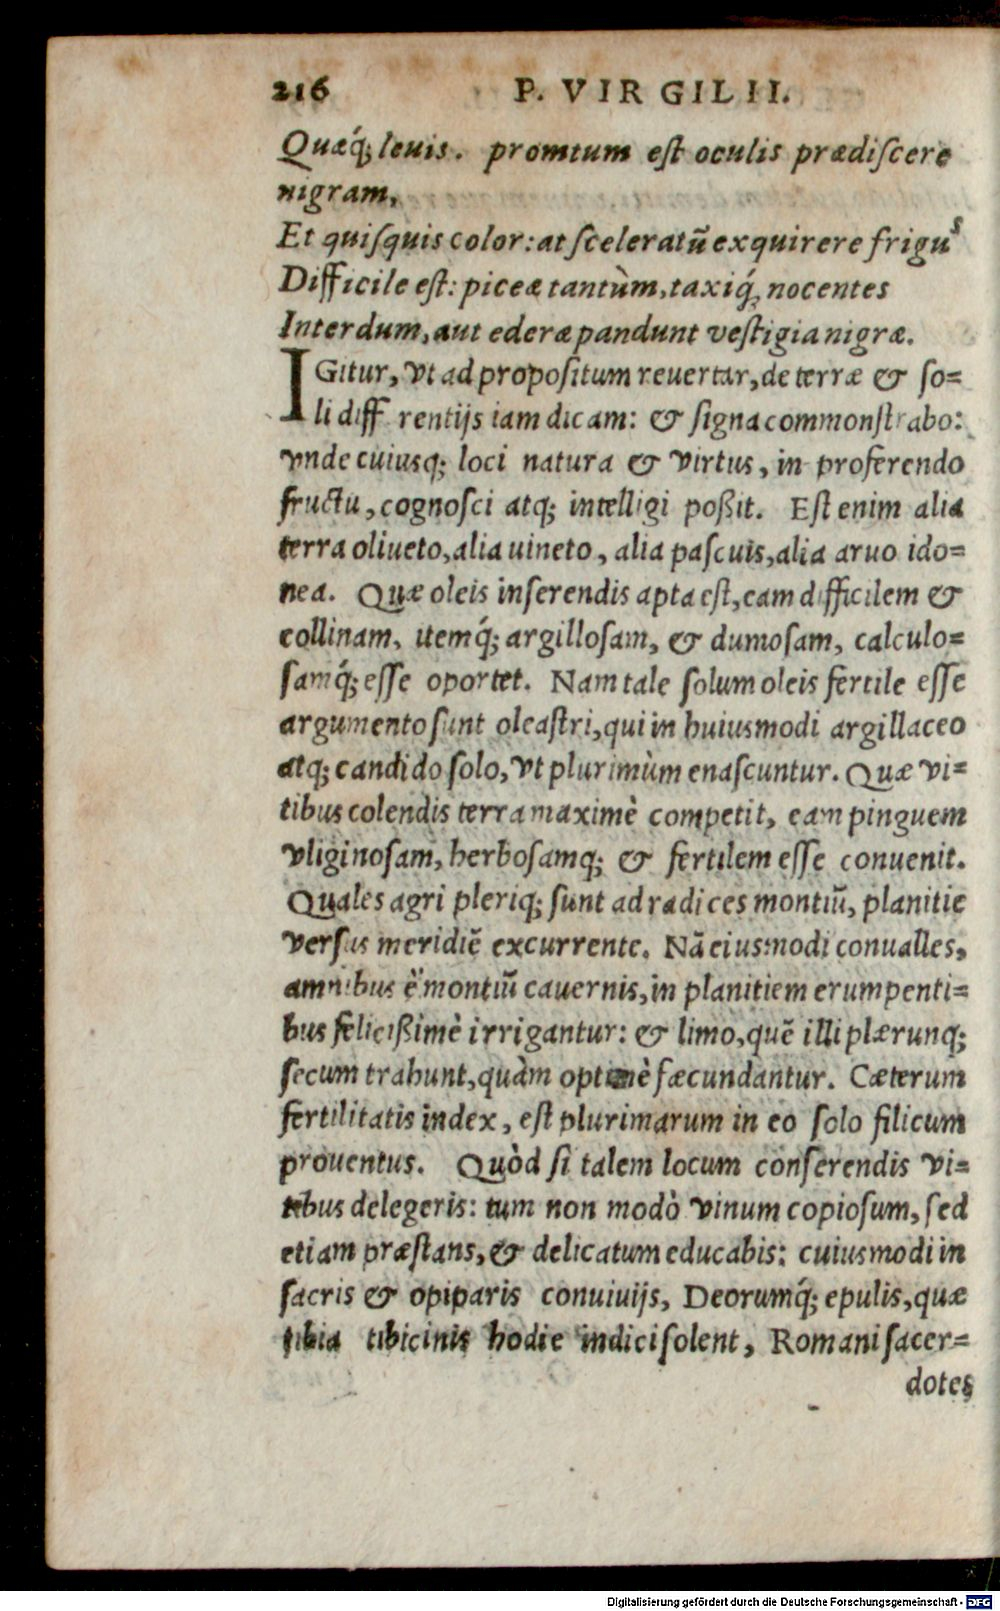 216 P. VIRGILII.
Quæq́; leuis. promtum eſt oculis prædiſcere
nigram,
Et quiſquis color: at ſceleratū exquirere frigus
Difficile eſt: piceæ tantùm, taxiq́; nocentes
Interdum, aut ederæ pandunt veſtigia nigræ.
IGitur, vt ad propoſitum reuertar, de terræ & ſo=
li diff rentijs iam dicam: & ſigna commonſtrabo:
vnde cuiusq; loci natura & virtus, in proferendo
fructu, cognoſci atq; intelligi poßit. Eſt enim alia
terra oliueto, alia uineto, alia paſcuis, alia aruo ido=
nea. Quæ oleis inſerendis apta eſt, eam difficilem &
collinam, itemq́; argilloſam, & dumoſam, calculo=
ſamq́; eſſe oportet. Nam tale ſolum oleis fertile eſſe
argumento ſunt oleaſtri, qui in huiusmodi argillaceo
atq; candido ſolo, vt plurimùm enaſcuntur. Quæ vi=
tibus colendis terra maximè competit, eam pinguem
vliginoſam, herboſamq; & fertilem eſſe conuenit.
Quales agri pleriq; ſunt ad radices montiū, planitie
verſus meridiē excurrente. Nā eiusmodi conualles,
amnibus è montiū cauernis, in planitiem erumpenti=
bus felicißimè irrigantur: & limo, quē illi plærunq;
ſecum trahunt, quàm optimè fæcundantur. Cæterum
fertilitatis index, eſt plurimarum in eo ſolo filicum
prouentus. Quòd ſi talem locum conſerendis vi=
tibus delegeris: tum non modò vinum copioſum, ſed
etiam præſtans, & delicatum educabis: cuiusmodi in
ſacris & opiparis conuiuijs, Deorumq́; epulis, quæ
tibia tibicinis hodie indici ſolent, Romani ſacer=
dotes
Digitalisierung gefördert durch die Deutsche Forschungsgemeinschaft - DFG